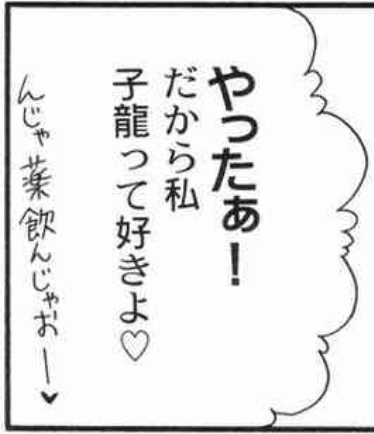 やったぁ！
だから私
子龍って好きよ♡
んじゃ薬飲んじゃおー♥